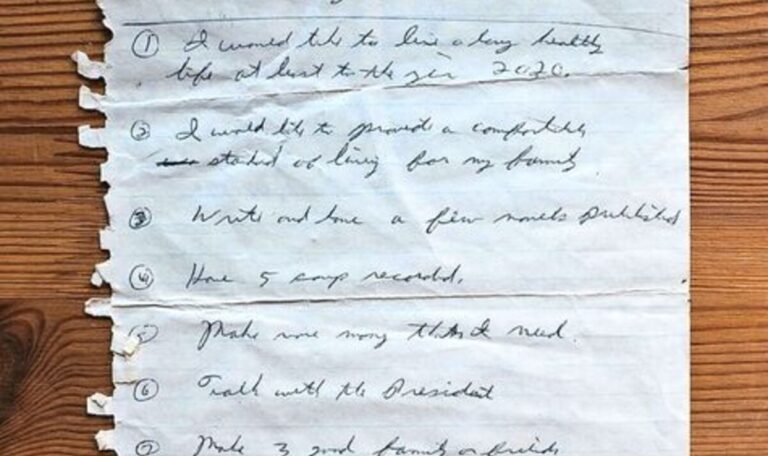 ① I would like to live a long healthy
life at least to the year 2020.
② I would like to provide a comfortable
standard of living for my family
③ Write and have a few novels published
④ Have 5 songs recorded.
⑤ Make more money than I need.
⑥ Talk with the President
⑦ Make 3 good family